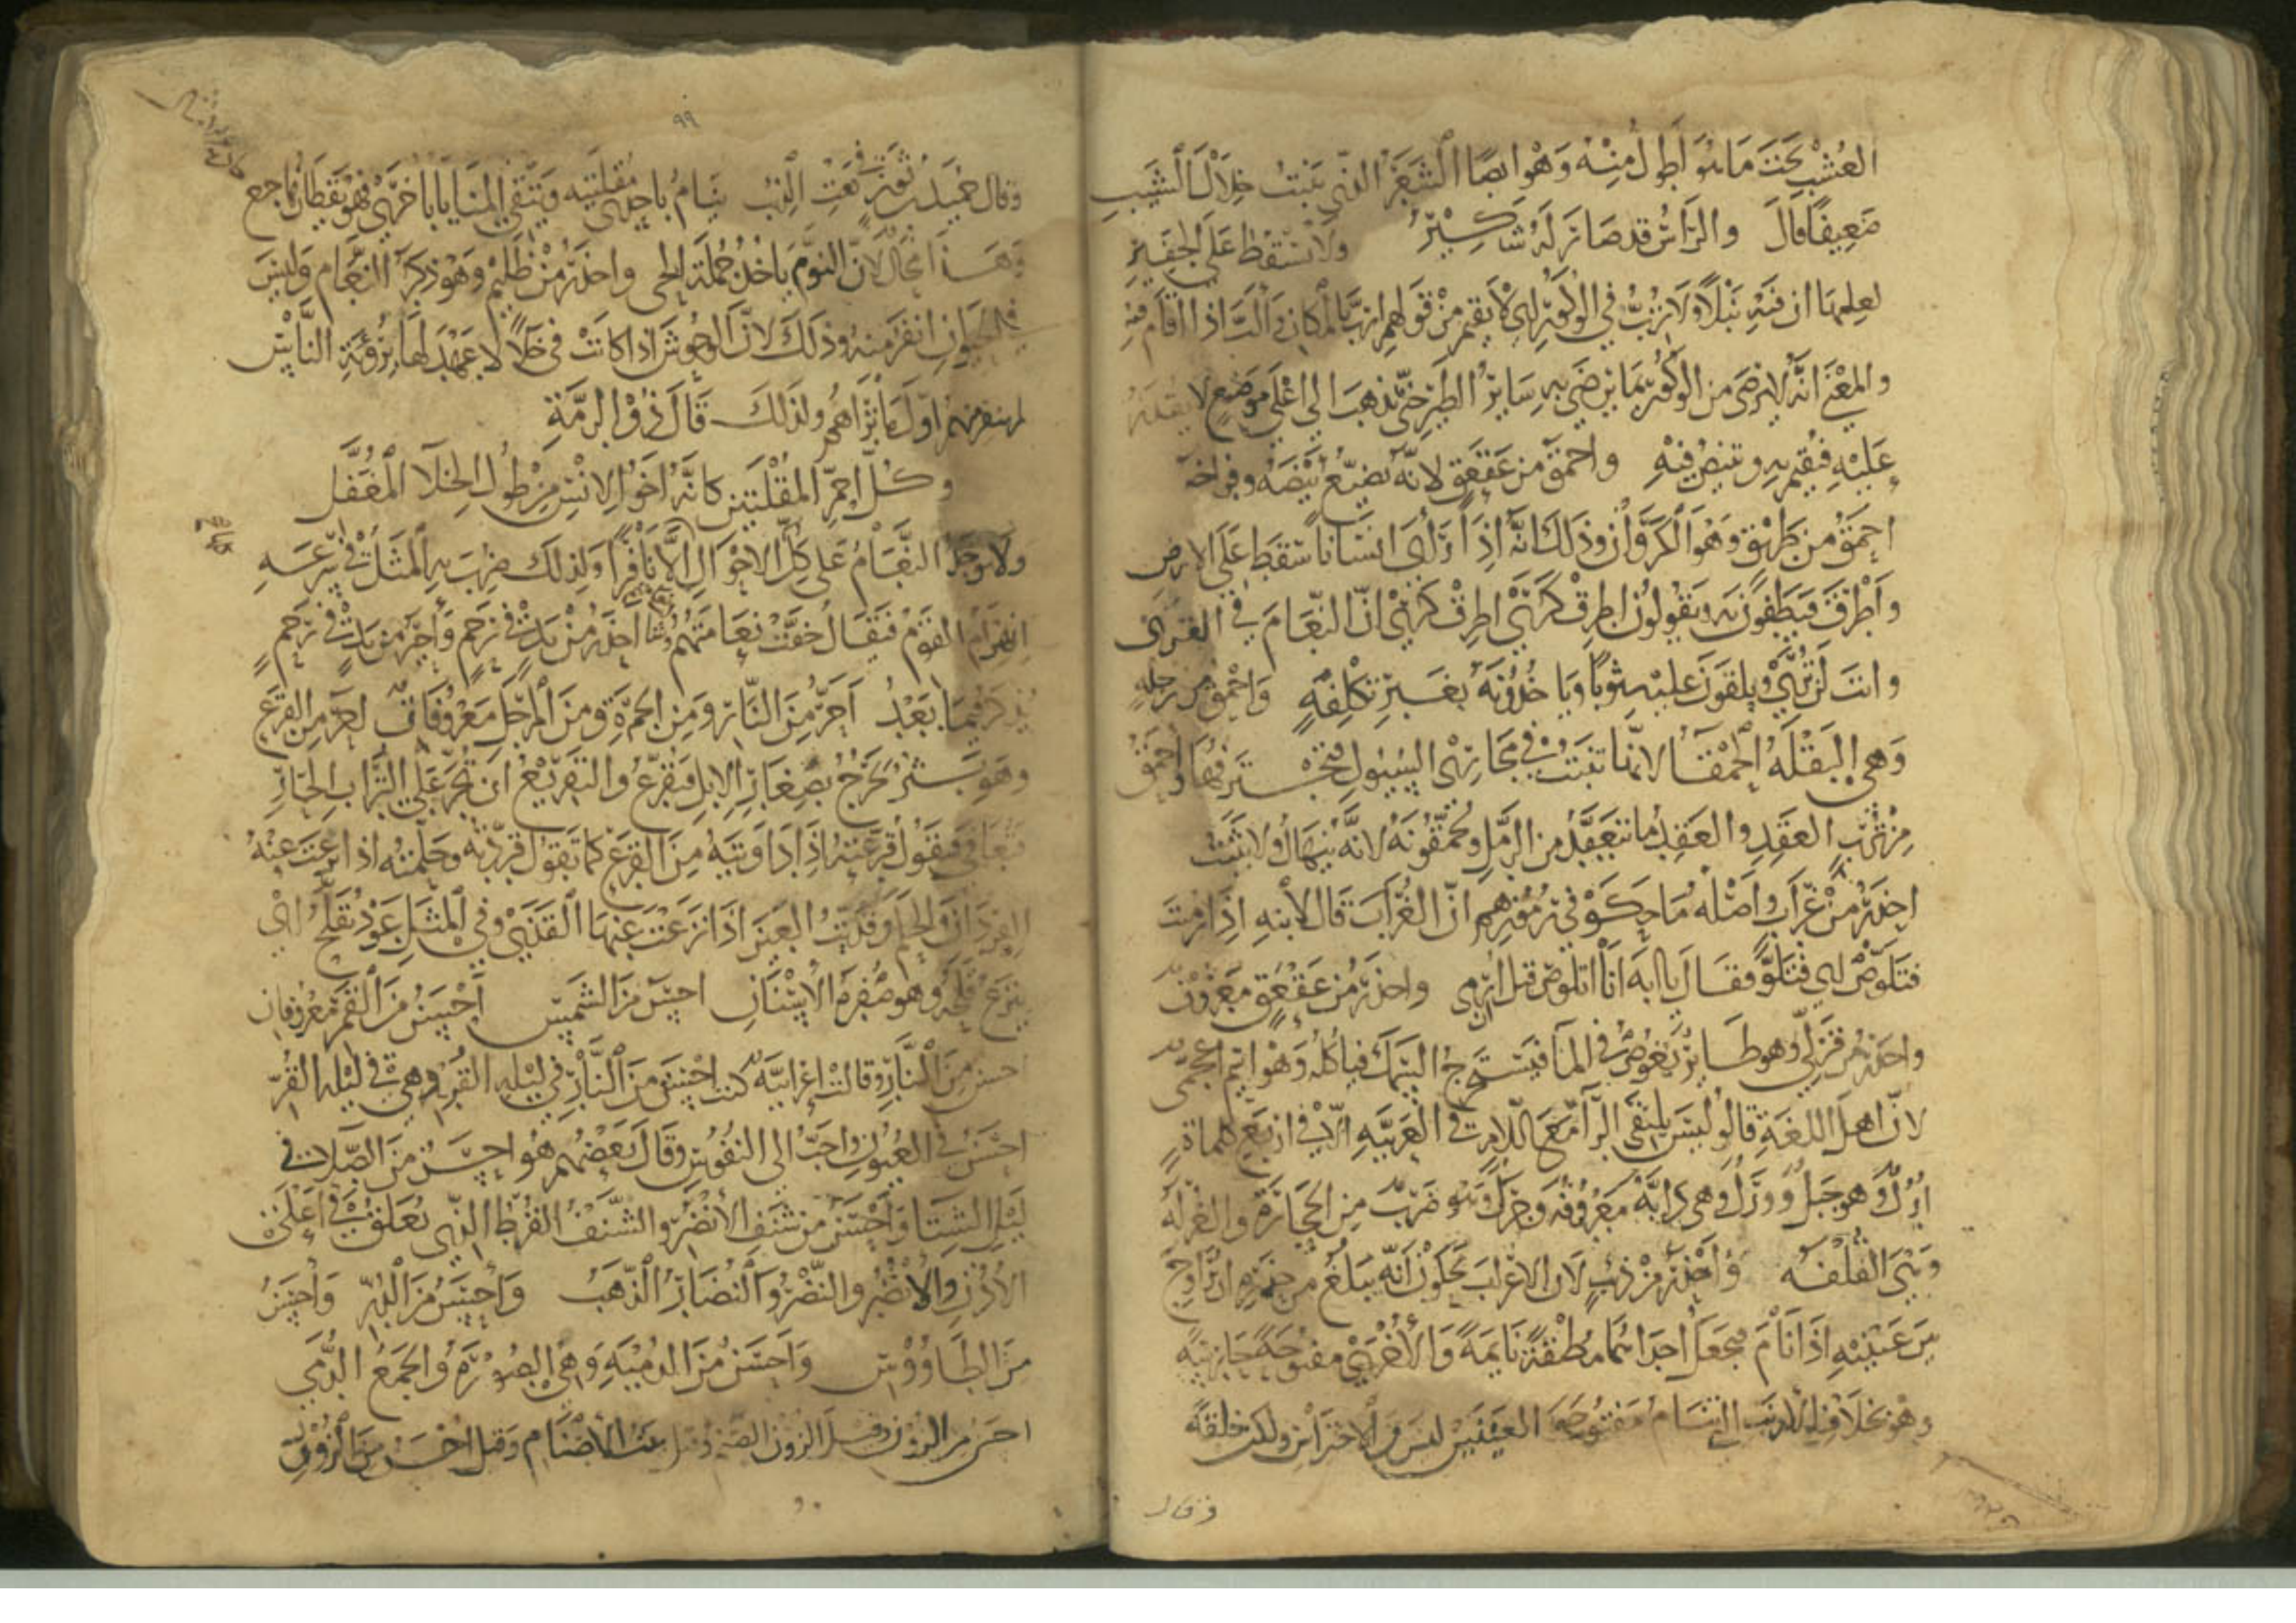 العشب تحت ما هو أطول منه وهو ايضا الشعر الذي ينبت خلال الشيب
ضعيفا قال والرأس قد صار له شكير ولا تسقط على الجفير
لعلمها ان فيه نبلا ولا ترب في الوكور اي لا تقيم من قولهم ارب بالمكان اذا اقام فيه
والمعنى انه لا يرضى من الوكور بما يرضى به ساير الطير حتى يذهب الى اعلى موضع لا يقدر
عليه فيقيم به ويبيض فيه واحمق من عقعق لانه يضيع بيضه وفراخه
احمق من طريق وهو الكروان وذلك انه اذا رأى انسانا سقط على الارض
وأطرق فيطيفون به ويقولون اطرق كرى اطرق كرى ان النعام في القرى
وانت لن ترى ويلقون عليه ثوبا وياخذونه بغير تكلفه واحمق من رجله
وهي البقلة الحمقا لانها تنبت في مجاري السيول فتجترفها واحمق
من ترب العقد والعقد ما تعقد من الرمل ويحمقونه لانه ينهال ولا يثبت
احذر من غراب واصله ما حكو في رموزهم ان الغراب قال لابنه اذا رميت
فتلوص اي فتلو فقال يا ابه انا اتلوص قبل ان ارمى واحذر من عقعق معروف
واحذر من قرلى وهو طاير يغوص في الما فيستخرج السمك فياكله وهو اسم اعجمي
لان اهل اللغة قالو ليس يلتقي الرآ مع اللام في العربيه الا في اربع كلماة
ارل وهو جبل وورل وهي دابة معروفه وجرل وهو ضرب من الحجارة والغرله
وهي القلفه واحذر من ذيب لان الاعراب يحكون انه يبلغ من حذره ان يراوح
بين عينيه اذا نام فيجعل احداهما مطبقة نايمة والاخرى مفتوحة حارسة
وهو بخلاف الارنب التي تنام مفتوحة العينين ليس من الاحتراس ولكن خلقة
وقال
٩٩
وقال حميد بن ثور في نعت الذيب ينام باحدى مقلتيه ويتقي المنايا باخرى فهو يقظان هاجع
وهذا محال لان النوم ياخذ جملة الحي واحذر من ظليم وهو ذكر النعام وليس
في الحيوان انفر منه وذلك لان الوحوش اذا كانت في خلا لا عهد لها برؤية الناس
لم ينفر منهم اول ما تراهم ولذلك قال ذو الرمة
وكل احم المقلتين كانه اخو الانس من طول الخلا المغفل
ولا يوجد النعام على كل الاحوال الا نافرا ولذلك ضرب به المثل في سرعة
انهزام القوم فيقال خفت نعامتهم احذر من يد في رحم وأحر من يد في رحم
يذكر فيما بعد احر من النار ومن الجمرة ومن المرجل معروفات احر من القرع
وهو بثر يخرج بصغار الابل فتقرع والتقريع ان تجر على التراب الحار
فتعافى فيقول قرعته اذا داويته من القرع كما تقول قردته وحلمته اذا نزعت عنه
القردان والحلم وقذيت العين اذا نزعت عنها القذى وفي المثل عود يقلح اي
ينزع قلحه وهو صفرة الاسنان احسن من الشمس احسن من القمر معروفان
احسن من النار وقالت اعرابية كنت احسن من النار في ليلة القر وهي في ليلة القر
احسن في العيون واحب الى النفوس وقال بعضهم هو احسن من الصلا في
ليل الشتا واحسن من شنف الانضر والشنف القرط الذي يعلق في اعلى
الاذن والانضر والنضر والنضار الذهب واحسن من الدر واحسن
من الطاووس واحسن من الدمية وهي الصورة والجمع الدمى
احسن من الزون وقيل الزون الصنم وقيل بيت الاصنام وقيل احسن من الزون